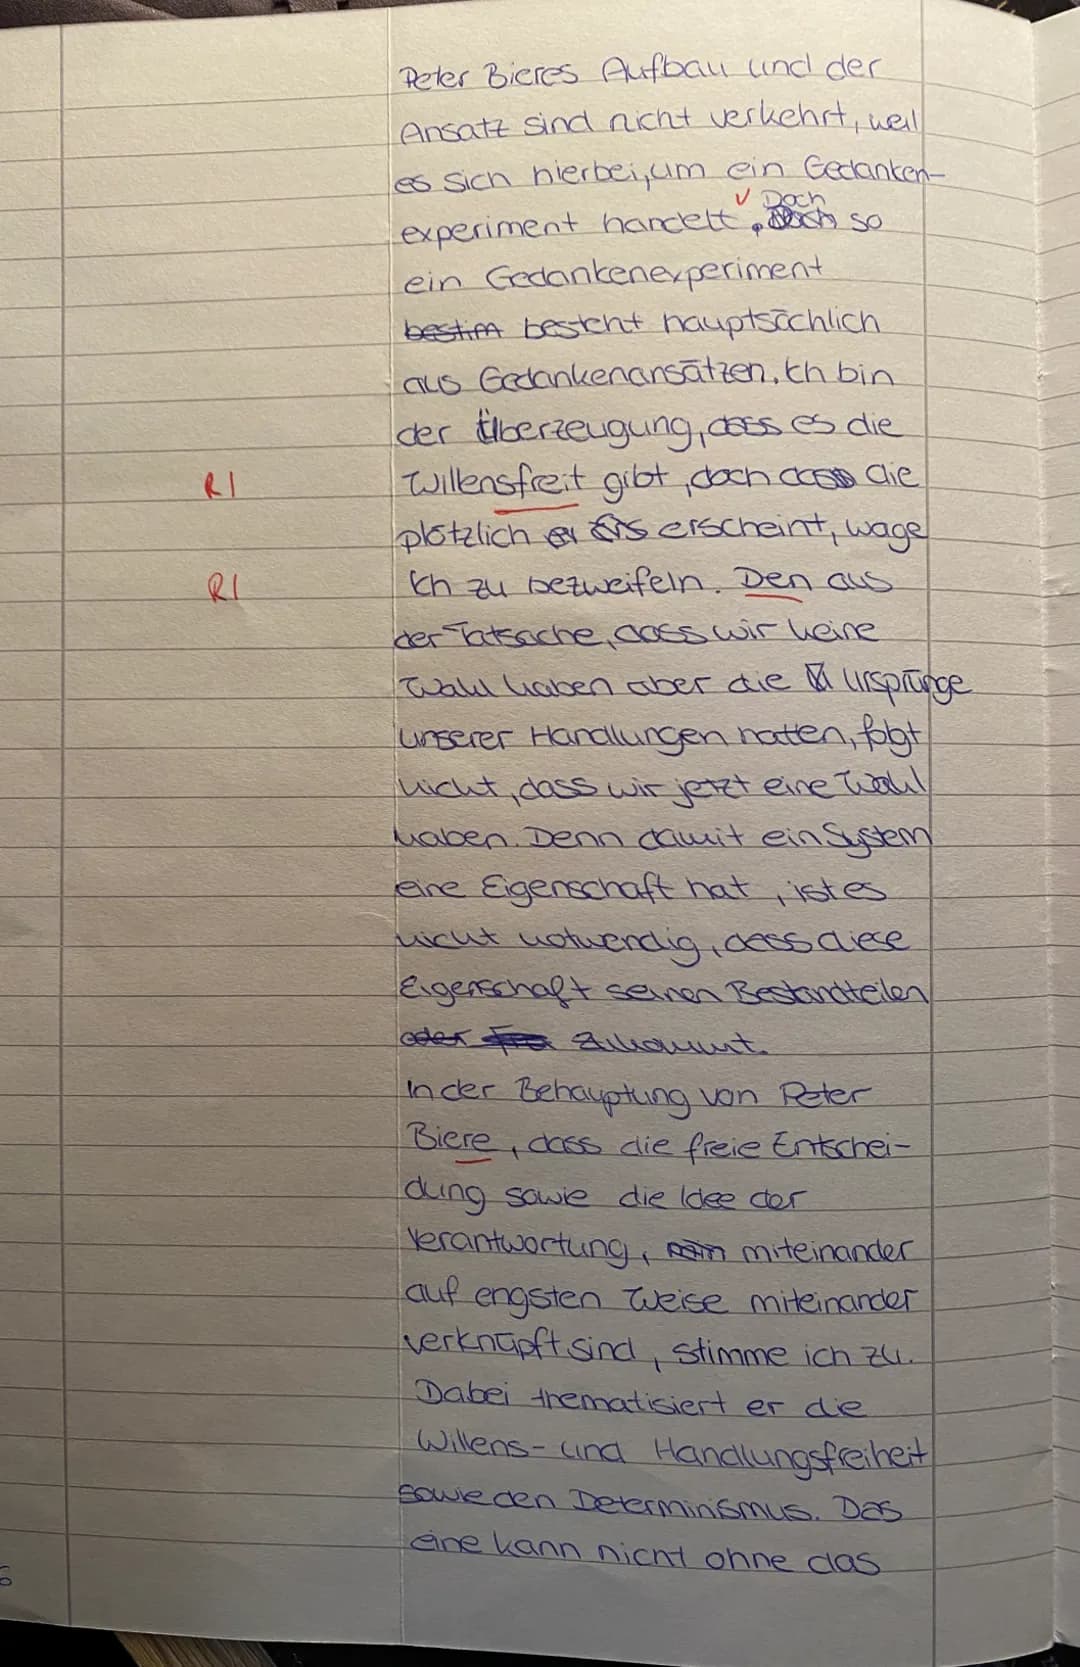 Peter Bieres Aufbau und der
Ansatz sind nicht verkehrt, weil
es sich hierbei, um ein Gedanken-
experiment handelt. Doch so
ein Gedankenexperiment
bestim besteht hauptsächlich
aus Gedankenansätzen. Ich bin
der Überzeugung, dass es die
R1 Willensfreit gibt, doch dass die
plötzlich er erscheint, wage
R1 Ich zu bezweifeln. Den aus
der Tatsache, dass wir keine
Wahl haben aber die Ursprünge
unserer Handlungen hatten, folgt
nicht, dass wir jetzt eine Wahl
haben. Denn damit ein System
eine Eigenschaft hat, ist es
nicht notwendig, dass diese
Eigenschaft seinen Bestandteilen
oder zukommt.
In der Behauptung von Peter
Biere, dass die freie Entschei-
dung sowie die Idee der
Verantwortung, miteinander
auf engsten Weise miteinander
verknüpft sind, stimme ich zu.
Dabei thematisiert er die
Willens- und Handlungsfreiheit
sowie den Determinismus. Das
eine kann nicht ohne das
6